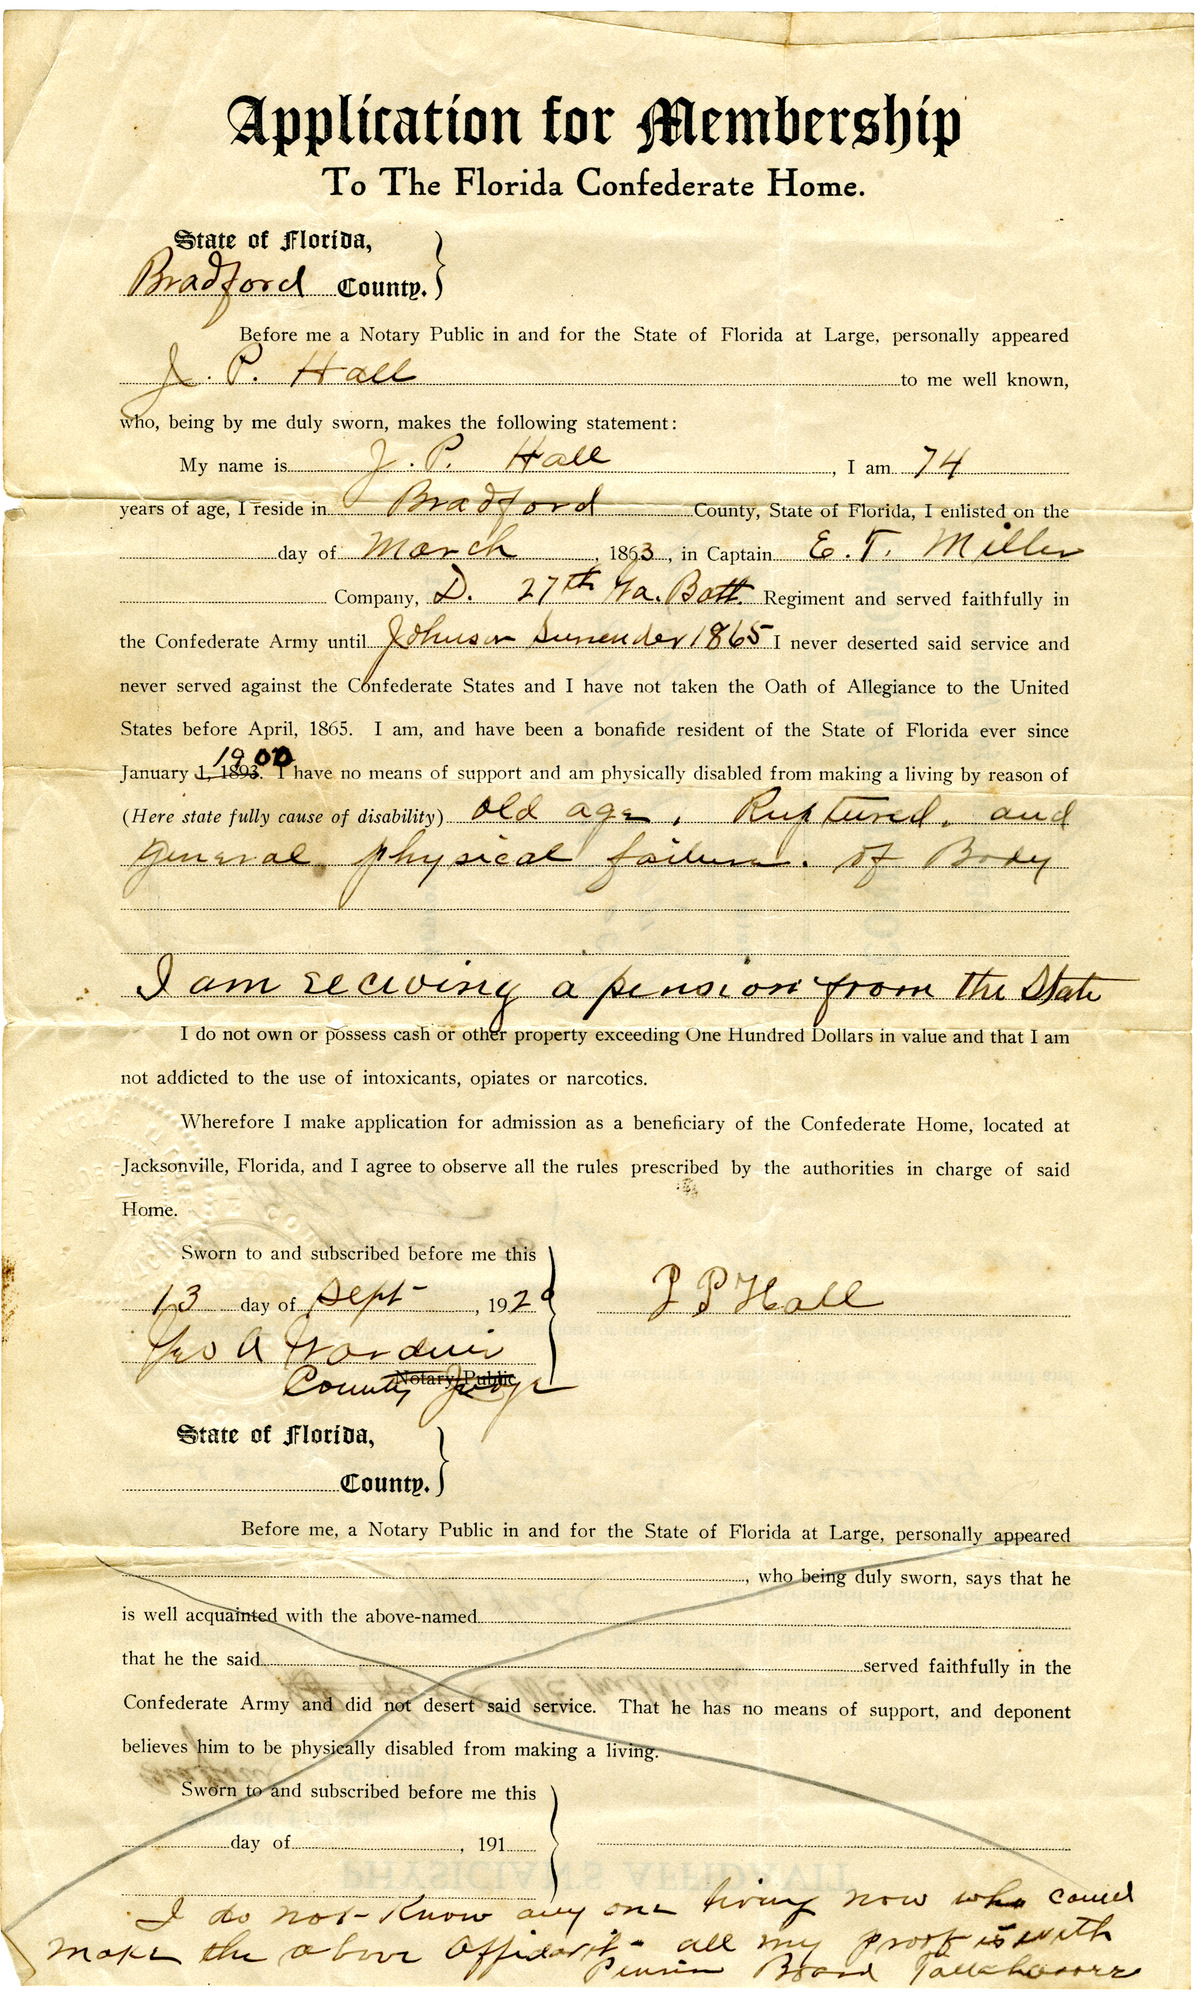 Application for Membership
To The Florida Confederate Home.
State of Florida,
Bradford County.
Before me a Notary Public in and for the State of Florida at Large, personally appeared
J. P. Hall to me well known,
who, being by me duly sworn, makes the following statement:
My name is J. P. Hall, I am 74
years of age, I reside in Bradford County, State of Florida, I enlisted on the
day of March, 1863, in Captain E. T. Miller
Company, D. 27th Ga. Batt. Regiment and served faithfully in
the Confederate Army until Johnson Surrender 1865 I never deserted said service and
never served against the Confederate States and I have not taken the Oath of Allegiance to the United
States before April, 1865. I am, and have been a bonafide resident of the State of Florida ever since
1900
January 1, 1893. I have no means of support and am physically disabled from making a living by reason of
(Here state fully cause of disability) old age, Ruptured, and
general physical failure. of Body
I am receiving a pension from the State
I do not own or possess cash or other property exceeding One Hundred Dollars in value and that I am
not addicted to the use of intoxicants, opiates or narcotics.
Wherefore I make application for admission as a beneficiary of the Confederate Home, located at
Jacksonville, Florida, and I agree to observe all the rules prescribed by the authorities in charge of said
Home.
Sworn to and subscribed before me this
13 day of Sept, 1920 J P Hall
Geo A Gardner
County Judge Notary Public
State of Florida,
County.
Before me, a Notary Public in and for the State of Florida at Large, personally appeared
, who being duly sworn, says that he
is well acquainted with the above-named
that he the said served faithfully in the
Confederate Army and did not desert said service. That he has no means of support, and deponent
believes him to be physically disabled from making a living.
Sworn to and subscribed before me this
day of , 191
I do not Know any one living now who could
make the above Affidavit - all my proof is with
Pension Board Tallahassee